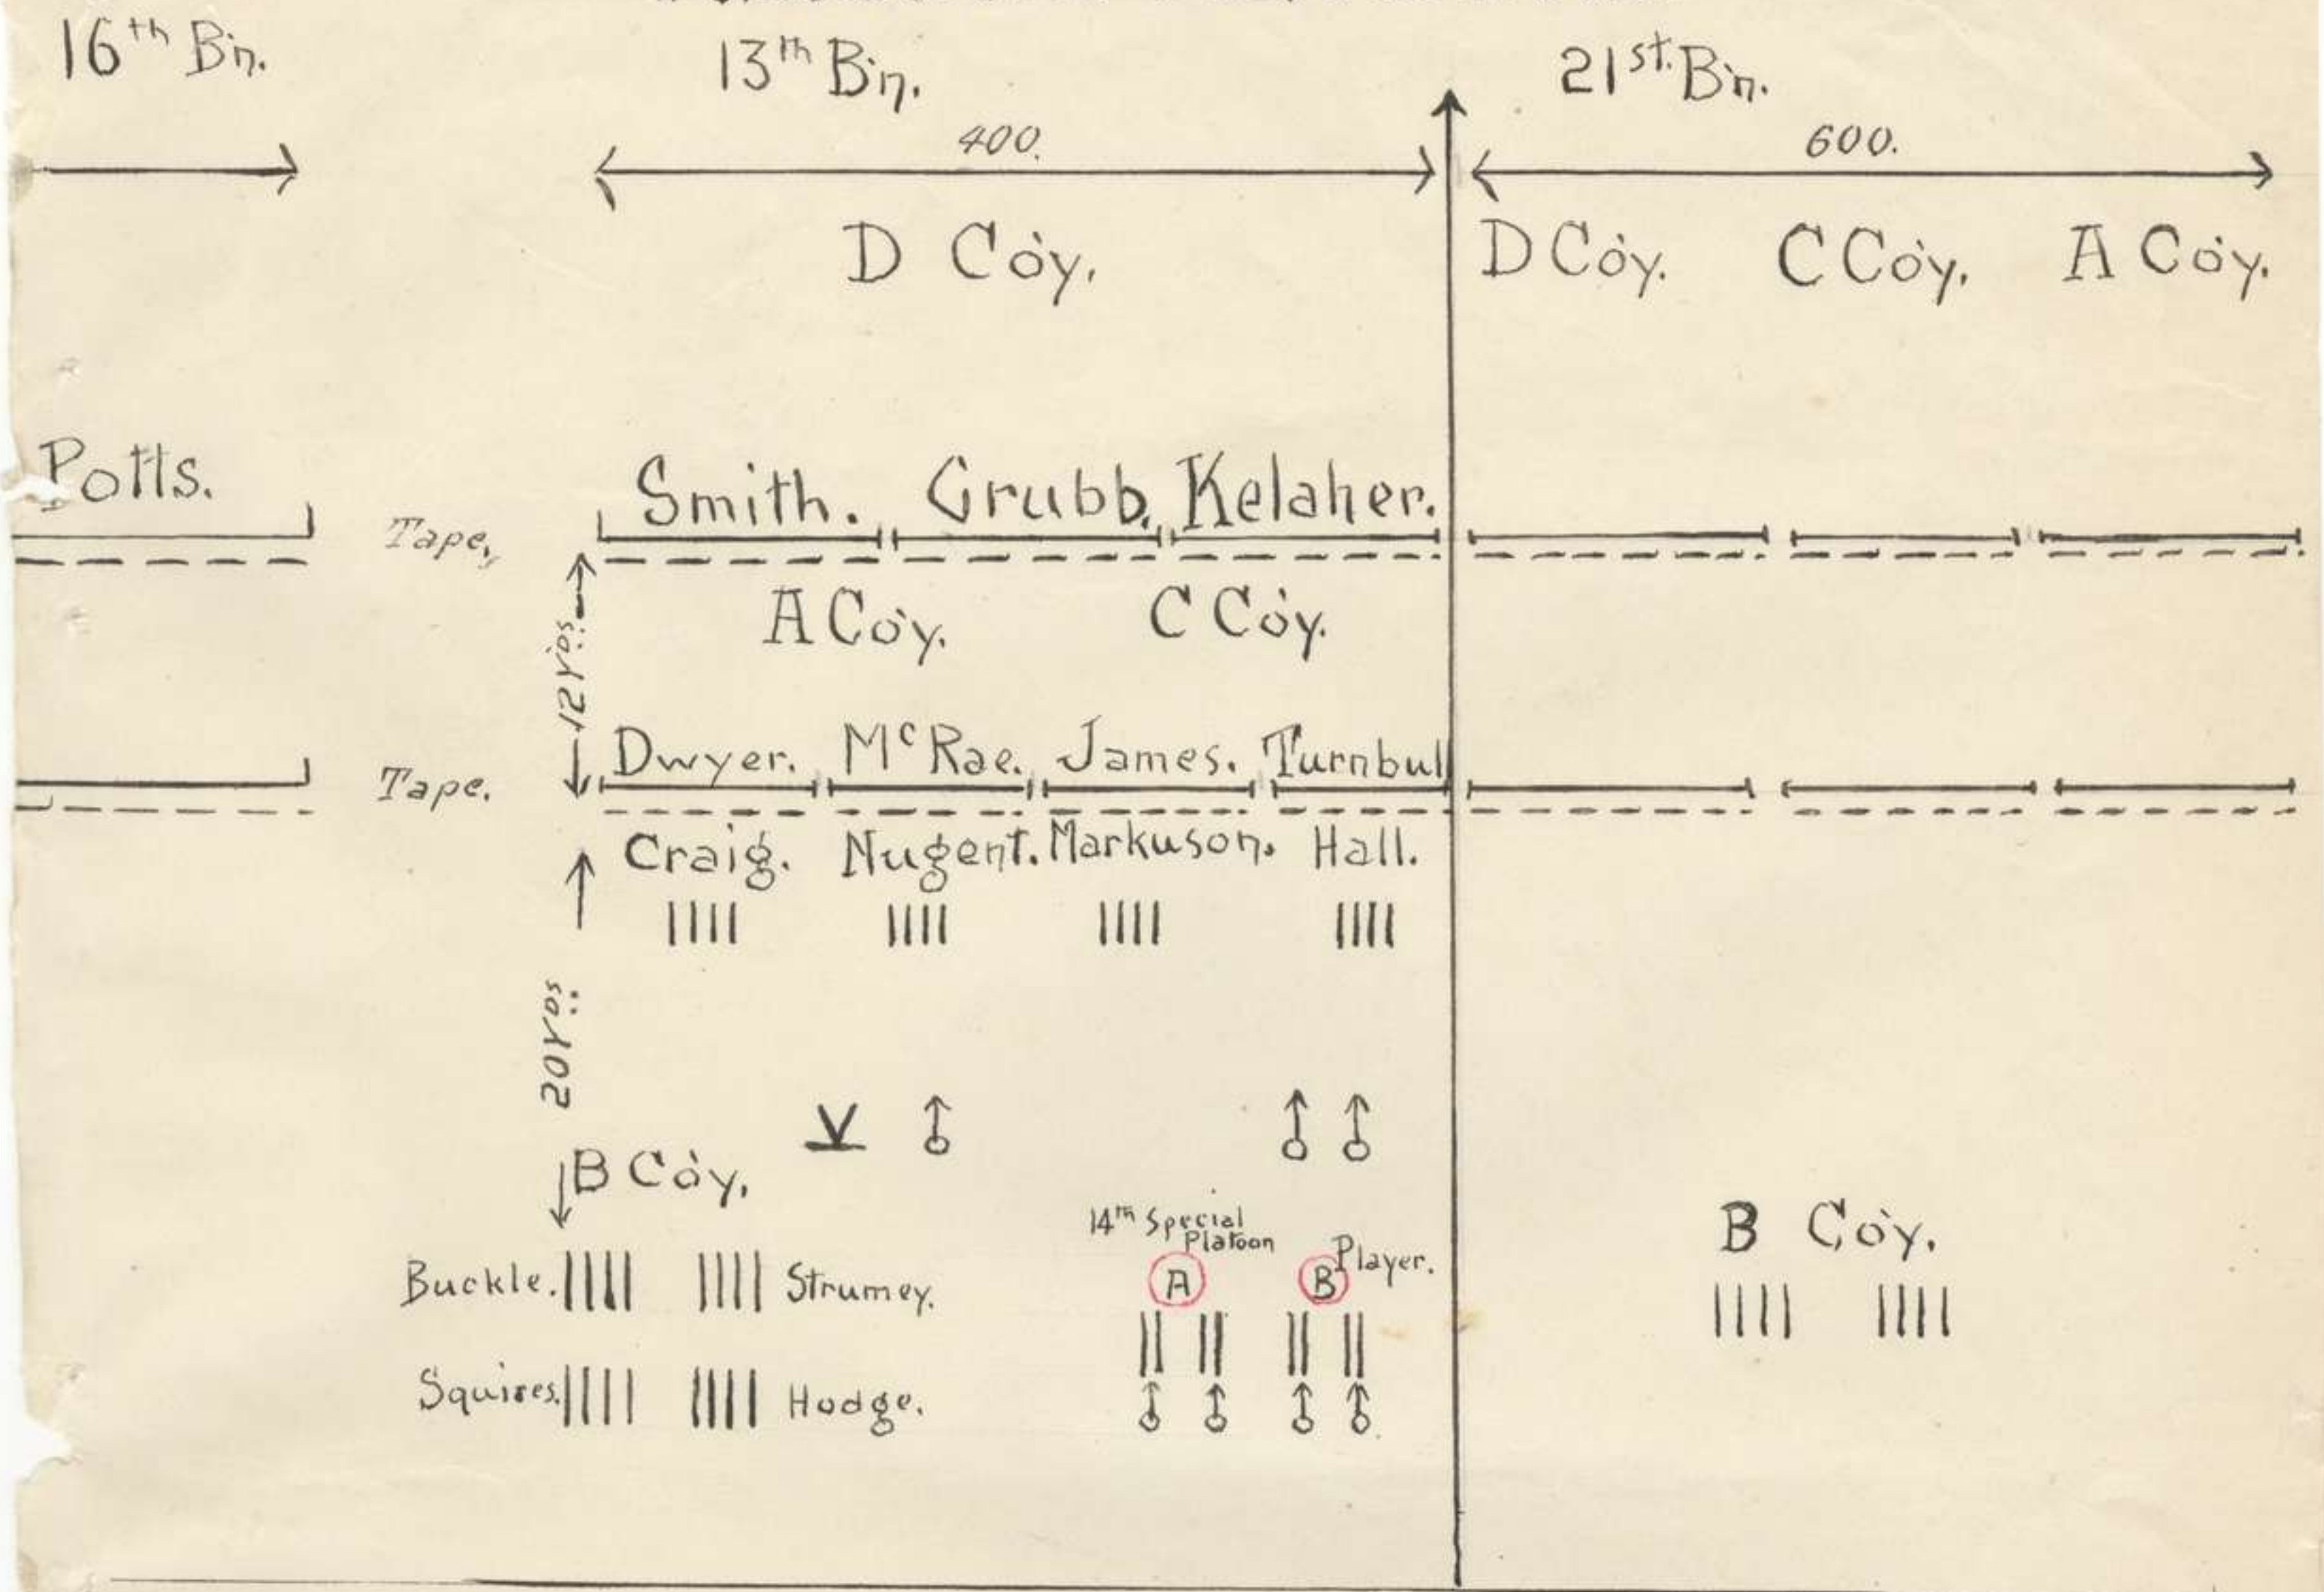 16th Bn. 13th Bn. 21st. Bn.
400. 600.
D Coy. D Coy. C Coy. A Coy.
Potts. Smith. Grubb. Kelaher.
Tape.
A Coy. C Coy.
12 Yds.
Dwyer. McRae. James. Turnbull
Tape.
Craig. Nugent. Markuson. Hall.
20 Yds.
B Coy.
14th Special
Platoon
B Coy.
Buckle. Strumey. A B Player.
Squires. Hodge.